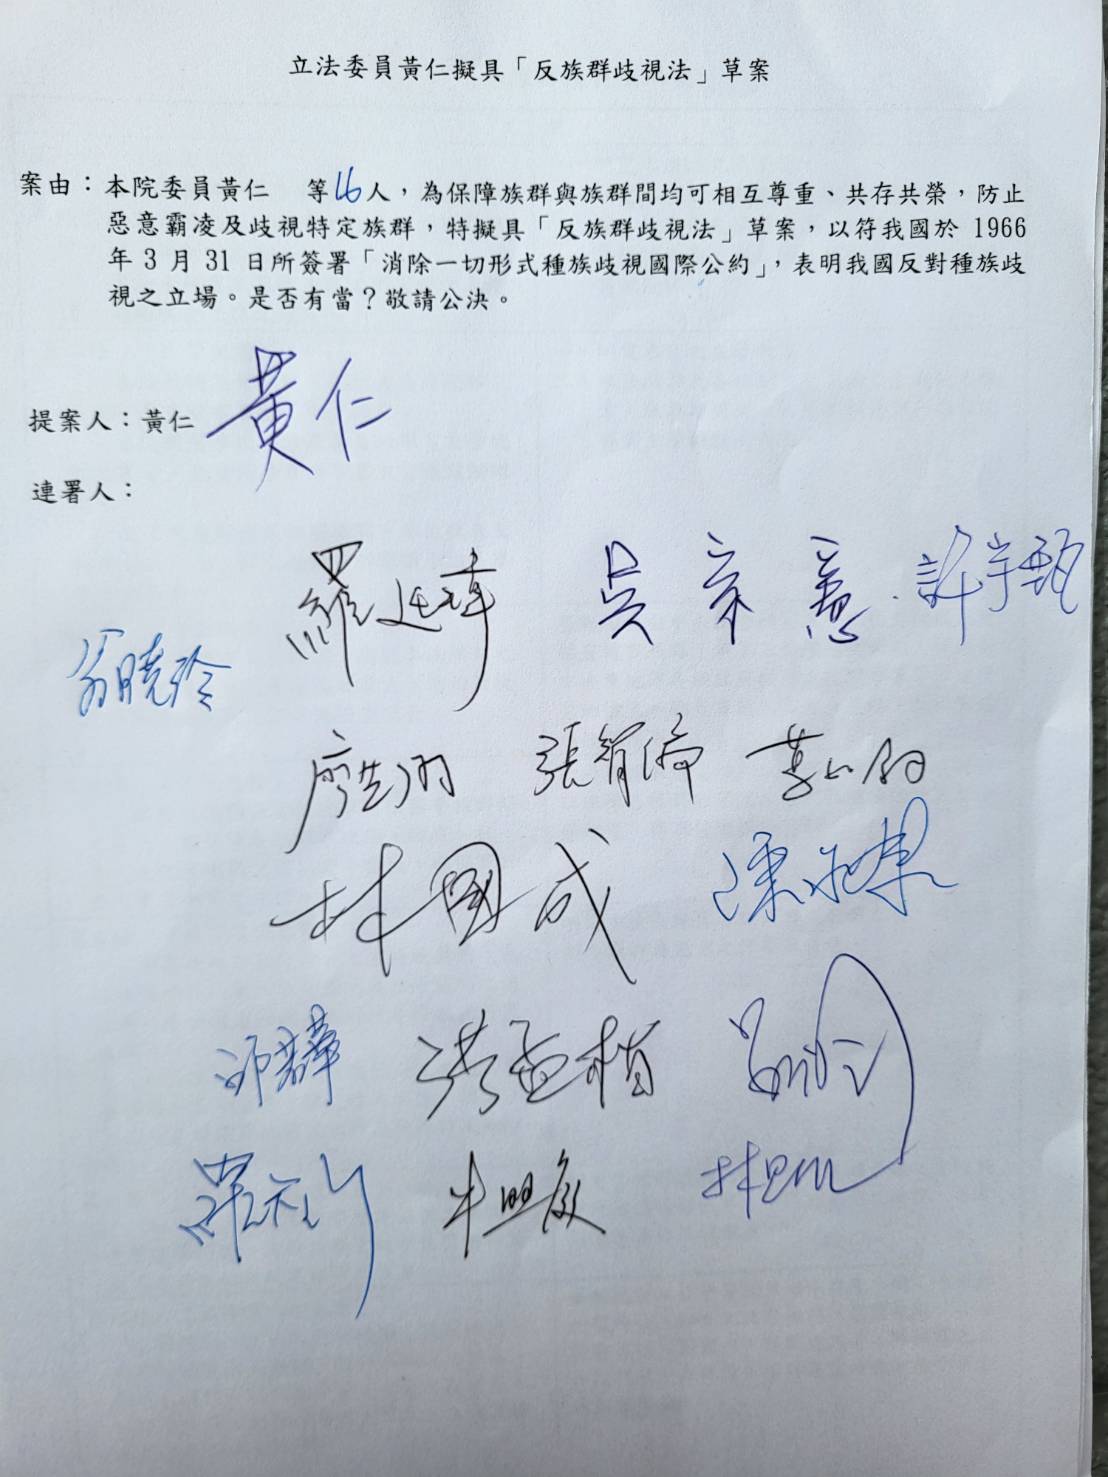 立法委員黃仁擬具「反族群歧視法」草案
案由：本院委員黃仁　等16人，為保障族群與族群間均可相互尊重、共存共榮，防止
惡意霸凌及歧視特定族群，特擬具「反族群歧視法」草案，以符我國於 1966
年 3 月 31 日所簽署「消除一切形式種族歧視國際公約」，表明我國反對種族歧
視之立場。是否有當？敬請公決。
提案人：黃仁 黃仁
連署人：
羅廷瑋 吳宗憲 許宇甄
翁曉玲
廖先翔 張智倫
林國成
邱若華 洪孟楷
牛煦庭 林思銘